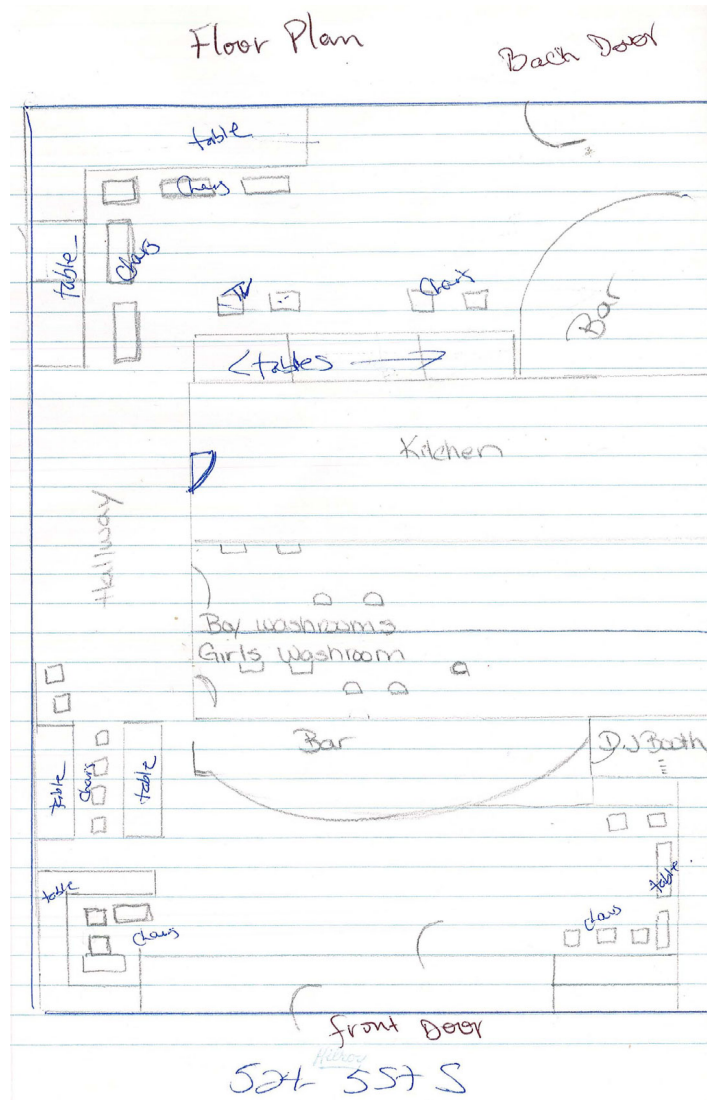 Floor Plan
Back Door
table
Chairs
table
Chairs
Chairs
Bar
<tables
Kitchen
Hallway
Boy washrooms
Girls Washroom
Bar
DJ Booth
table
Chairs
table
table
table
Chairs
chairs
front Door